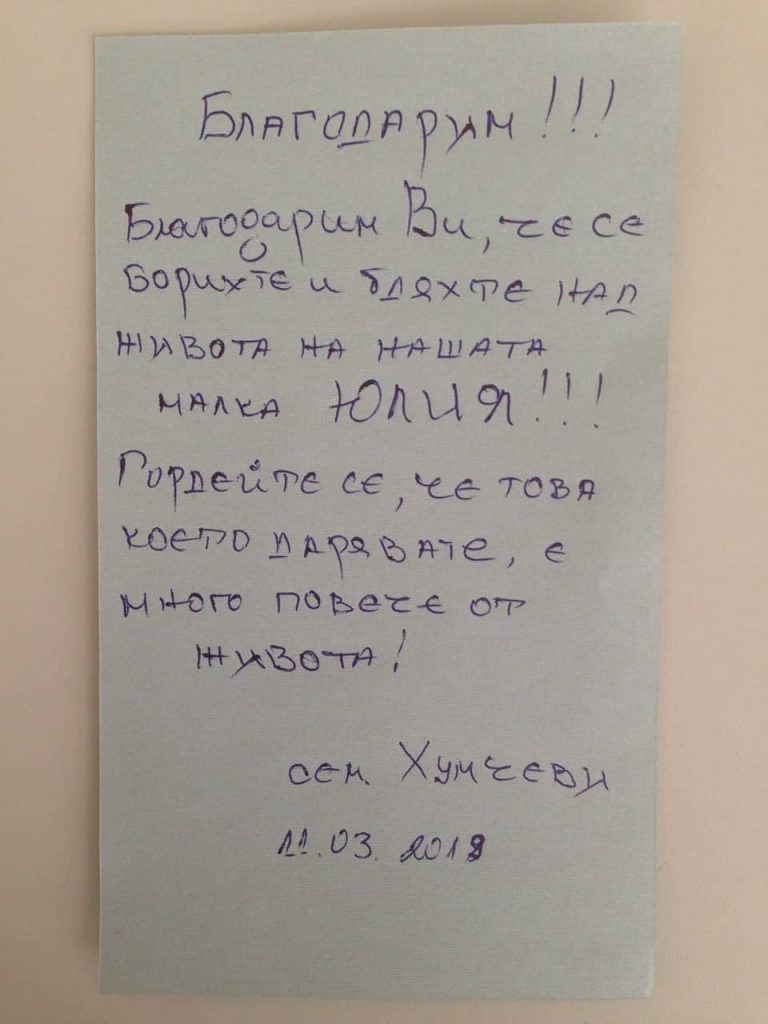 Благодарим!!!
Благодарим Ви, че се
борихте и бдяхте над
живота на нашата
малка Юлия!!!
Гордейте се, че това
което дарявате, е
много повече от
живота!
сем. Хумчеви
11.03.2018